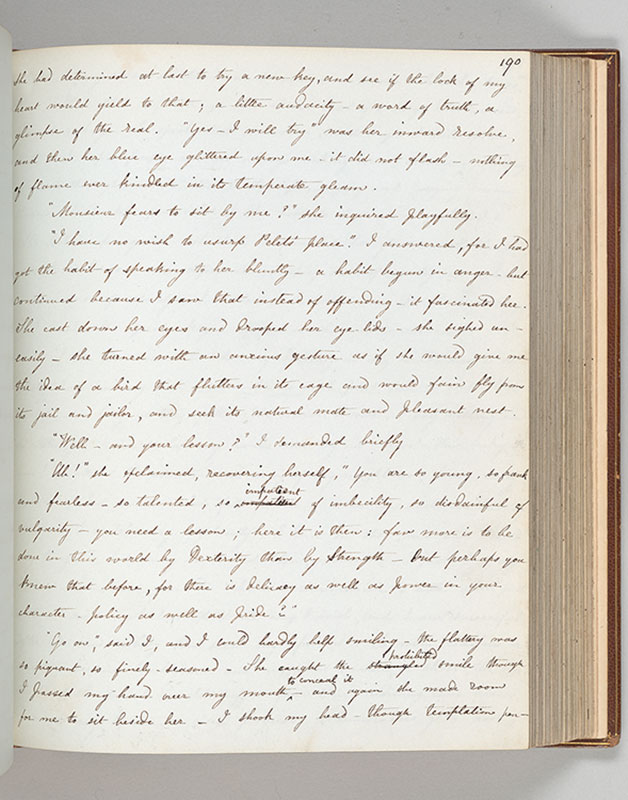 190
she had determined at last to try a new key, and see if the lock of my
heart would yield to that; a little audacity - a word of truth, a
glimpse of the real. "Yes - I will try" was her inward resolve,
and then her blue eye glittered upon me - it did not flash - nothing
of flame ever kindled in its temperate gleam.
"Monsieur fears to sit by me?" she inquired playfully.
"I have no wish to usurp Pelet's place." I answered, for I had
got the habit of speaking to her bluntly - a habit begun in anger - but
continued because I saw that instead of offending - it fascinated her.
She cast down her eyes and drooped her eye-lids - she sighed un-
easily - she turned with an anxious gesture as if she would give me
the idea of a bird that flutters in its cage and would fain fly from
its jail and jailor, and seek its natural mate and pleasant nest.
"Well - and your lesson?" I demanded briefly
"Ah!" she exclaimed, recovering herself, "You are so young, so frank
impatient
and fearless - so talented, so of imbecility, so disdainful of
vulgarity - you need a lesson; here it is then: far more is to be
done in this world by Dexterity than by Strength - but perhaps you
knew that before, for there is delicacy as well as power in your
character - policy as well as pride?"
"Go on", said I, and I could hardly help smiling - the flattery was
prohibited
so piquant, so finely-seasoned - She caught the smile though
to conceal it
I passed my hand over my mouth - and again she made room
for me to sit beside her - I shook my head - though temptation pen-